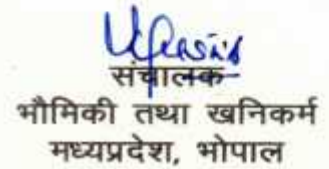 संचालक
भौमिकी तथा खनिकर्म
मध्यप्रदेश, भोपाल